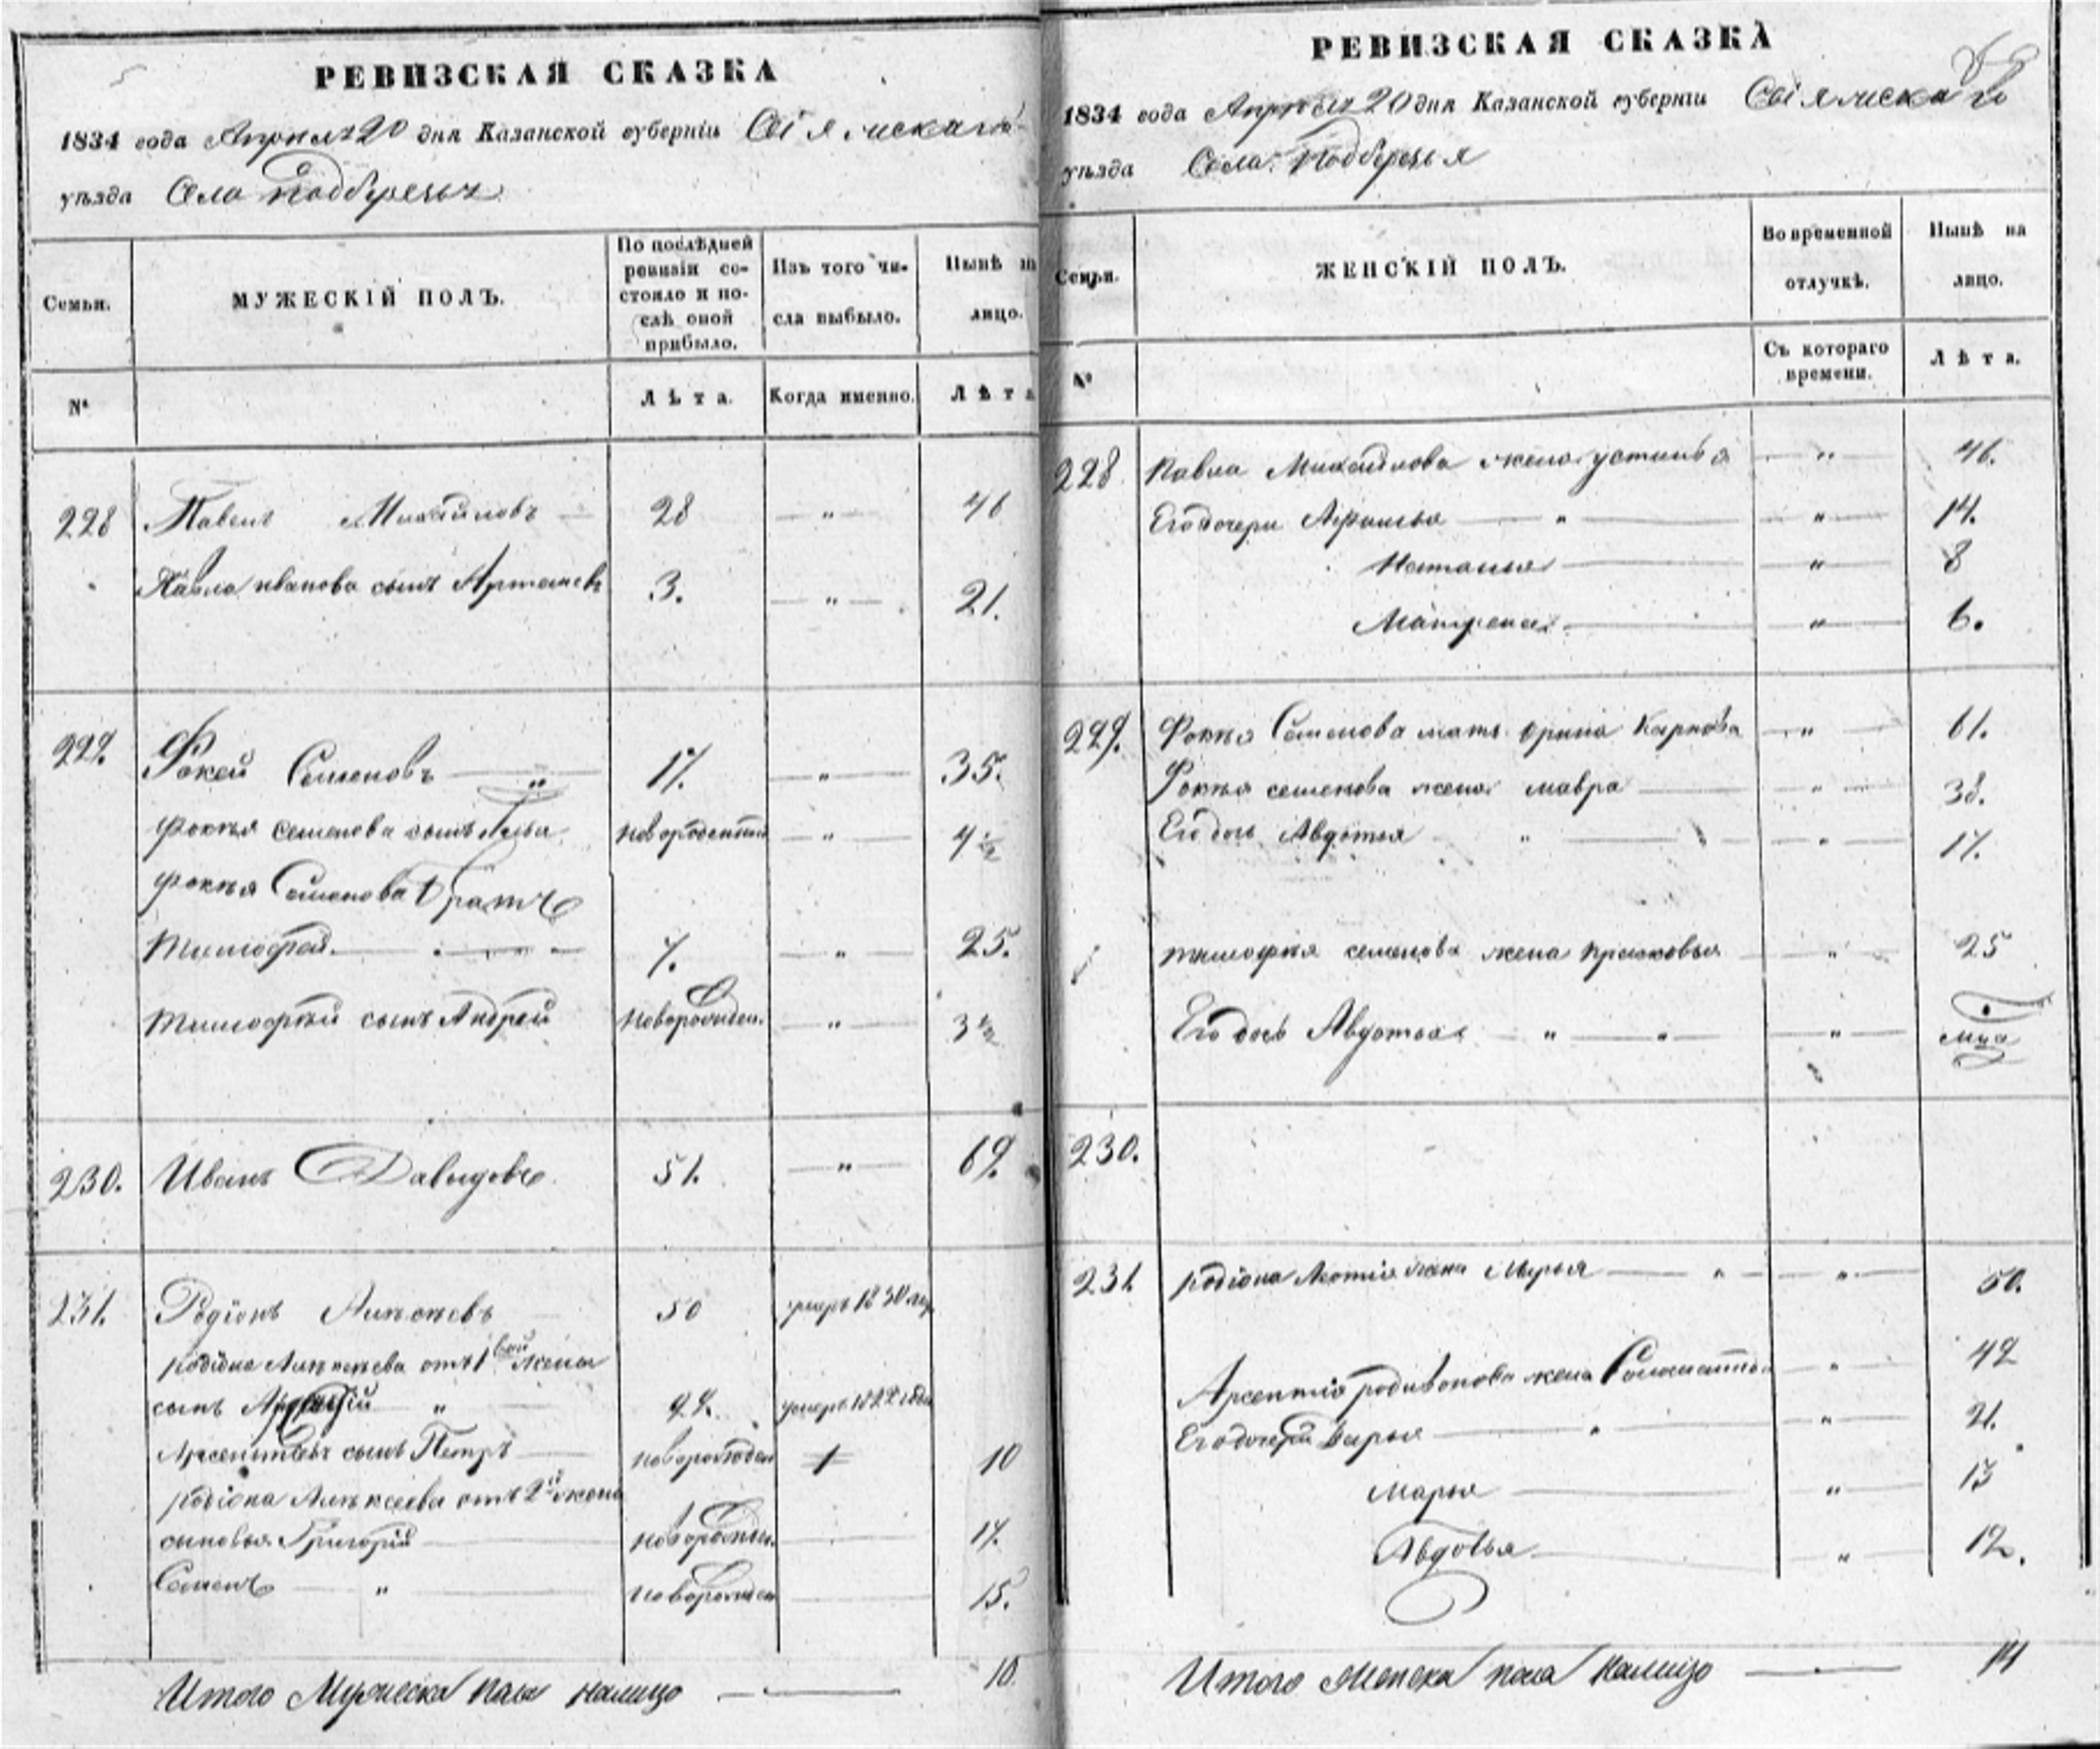 РЕВИЗСКАЯ СКАЗКА
1834 года Апреля 20 дня Казанской губерніи Свіяжскаго
уѣзда Села Подберезья
Семьи.
МУЖЕСКІЙ ПОЛЪ.
По послѣдней ревизіи состояло и послѣ оной прибыло.
Изъ того числа выбыло.
Нынѣ на лицо.
№
Лѣта.
Когда именно.
Лѣта
228 Павелъ Михайловъ — 28 — " — 46
Павла иванова сынъ Артемьевъ 3. — " — 21.
229. Фокей Семеновъ — " 17. — " — 35.
Фокѣя семенова сынъ новорожденный — " — 4 ½
Фокѣя Семенова братъ
Тимофей — 7. — " — 25.
Тимофѣй сынъ Андрей новорожден. — " — 3 ½
230. Иванъ Давыдовъ 51. — " — 69.
231. Родіонъ Алѣксѣевъ 50 умеръ 1830 году
Родіона Алѣксѣева отъ 1 вой жены
сынъ Арсентій " умеръ 1822 года
сынъ Петръ — новорожден 10
Родіона Алѣксеева отъ 2й жены
сыновья Григорій — новорожден. 17.
Семенъ — " новорожден 15.
Итого Мужеска пола налицо — 10
РЕВИЗСКАЯ СКАЗКА
1834 года Апреля 20 дня Казанской губерніи Свіяжскаго
уѣзда Села Подберезья
Семьи.
ЖЕНСКІЙ ПОЛЪ.
Во временной отлучкѣ.
Нынѣ на лицо.
№
Съ котораго времени.
Лѣта.
228 Павла Михайлова жена устинья — " — 46.
Его дочери — " — " — 14.
Наталья — " — 8
Матрена — " — 6.
229. Фокѣя Семенова мать Орина Карпова — " — 61.
Фокѣя семенова жена мавра — " — 38.
Его дочь Авдотья " — " — 17.
Тимофѣя семенова жена прасковья — " — 25
Его дочь Авдотья — " — " — " — мца
230.
231 Родіона жена Марья — " — " — 50.
Арсентія родивонова жена — " — 42
Его дочери Дарья — " — " — 21.
Марья — " — 13
Авдотья — " 12.
Итого Женска пола налицо — 14